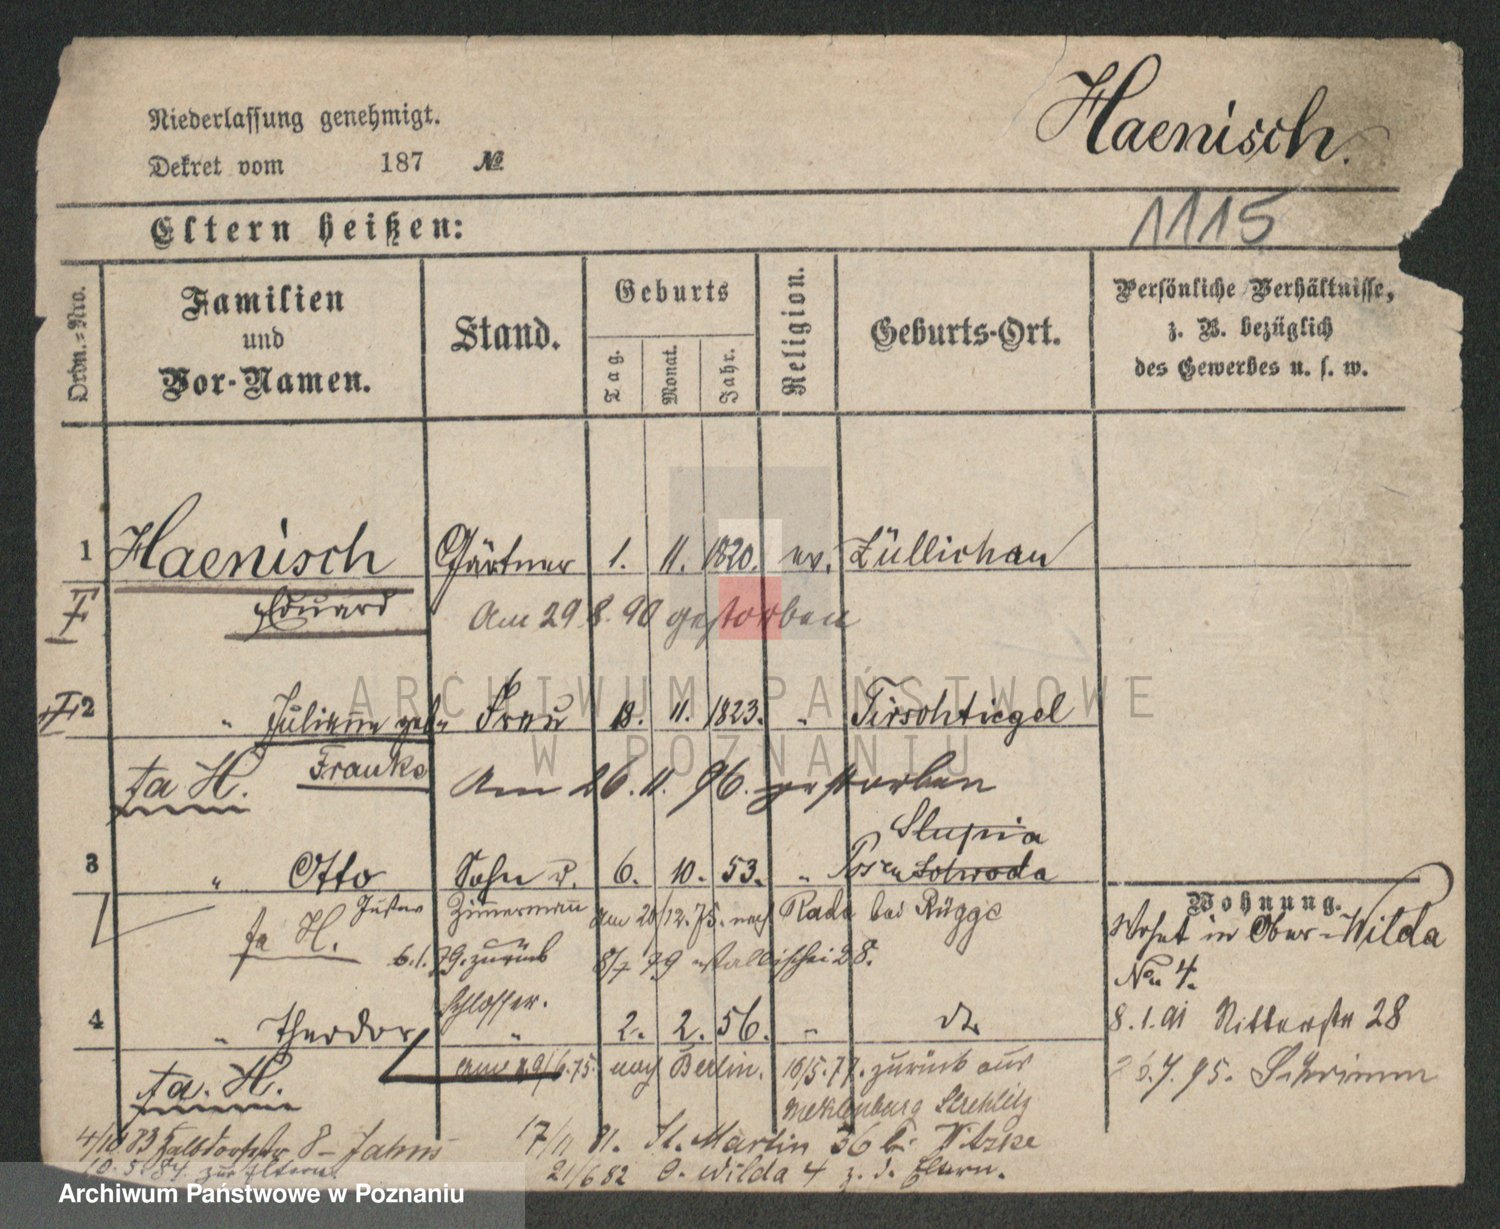 Haenisch.
Niederlassung genehmigt.
Dekret vom 187 №
Eltern heißen:
1115
Ordn.=Nro.
Familien
und
Vor-Namen.
Stand.
Geburts
Tag.
Monat.
Jahr.
Religion.
Geburts-Ort.
Persönliche Verhältnisse,
z. B. bezüglich
des Gewerbes u. s. w.
1 Haenisch Gärtner 1. 11. 1820. ev. Züllichau
Eduard Am 29.8.90 gestorben
2 " Juliane geb. Frau 18. 11. 1823. " Tirschtiegel
Franke
fa H. Am 26.11.96. gestorben
Slupia
3 " Otto Sohn 6. 10. 53. " Posen
Gustav Zimmermann am 20/12.75. nach Rada bei Rügge
fa H. 6.1.79. zurück 28.
Schlosser.
4 " Theodor " 2. 2. 56. " dto
fa. H. nach Berlin. zurück aus
Mecklenburg Strehlitz
4/10 83 Halbdorfstr 8 - Jahns
17/11 81. St. Martin 36 b. Vitzke
10.5.84 zur Eltern.
21/6 82 O. Wilda 4 z. d. Eltern.
Wohnung.
Wohnt in Ober-Wilda
No 4.
8.1.91 Ritterstr 28
7.95. Schrimm
ARCHIWUM PAŃSTWOWE
W POZNANIU
Archiwum Państwowe w Poznaniu